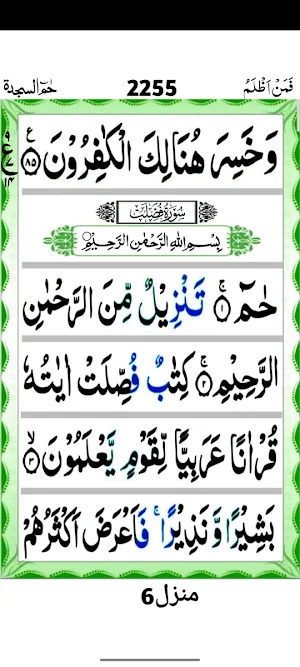 حٰمٓ السجدة 2255 فَمَنْ اَظْلَمُ
وَخَسِرَ هُنَالِكَ الْكٰفِرُوْنَ ۝٨٥
سُوْرَةُ فُصِّلَتْ
بِسْمِ اللهِ الرَّحْمٰنِ الرَّحِيْمِ
حٰمٓ ۝١ۚ تَنْزِيْلٌ مِّنَ الرَّحْمٰنِ
الرَّحِيْمِ ۝٢ۚ كِتٰبٌ فُصِّلَتْ اٰيٰتُهٗ
قُرْاٰنًا عَرَبِيًّا لِّقَوْمٍ يَّعْلَمُوْنَ ۝٣ۙ
بَشِيْرًا وَّ نَذِيْرًا ۚ فَاَعْرَضَ اَكْثَرُهُمْ
منزل 6